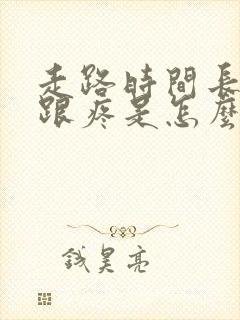 走路時間長
跟疼是怎麼
錢昊亮